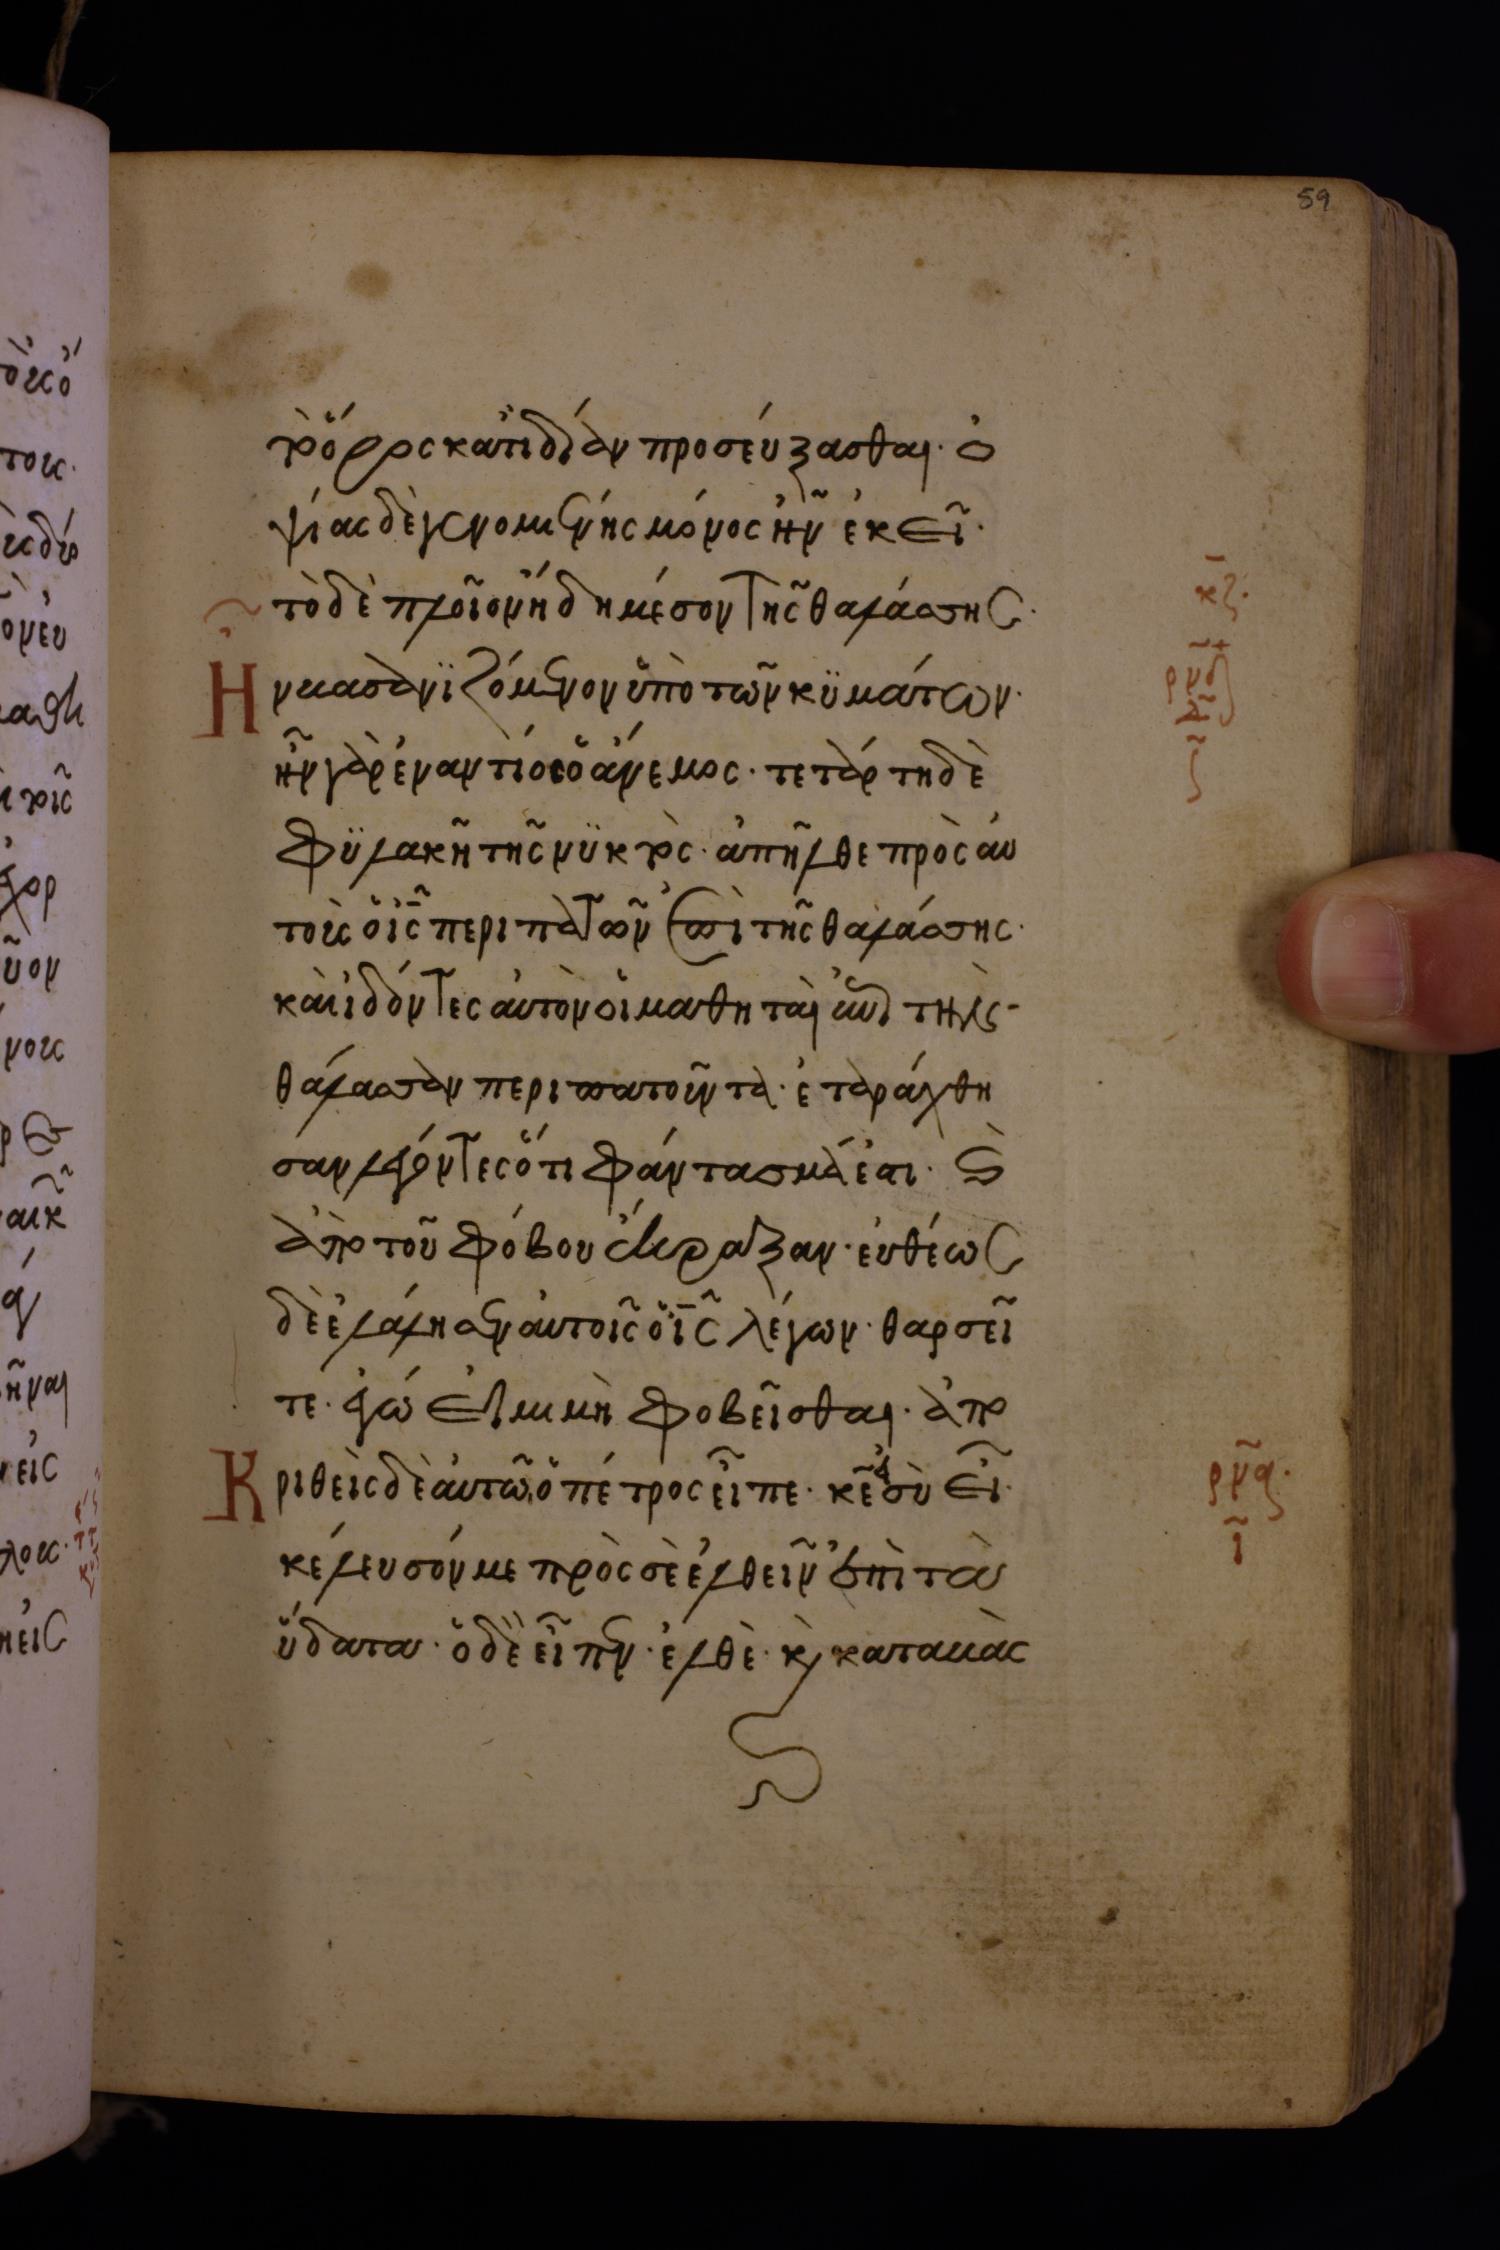 59
τὸ ὄρος κατιδίαν προσεύξασθαι· ὀ
ψίας δὲ γενομένης μόνος ἦν ἐκεῖ·
τὸ δὲ πλοῖον ἤδη μέσον τῆς θαλάσσης·
Ἦν βασανϊζόμενον ὑπὸ τῶν κϋμάτων·
ἦν γὰρ ἐναντίος ὁ ἄνεμος· τετάρτη δὲ
φϋλακῆ τῆς νϋκτὸς· ἀπῆλθε πρὸς αὐ
τοὺς ὁ ις περιπατῶν ἐπὶ τῆς θαλάσσης·
καὶ ἰδόντες αὐτὸν οἱ μαθηταὶ ἐπὶ τὴν
θάλασσαν περιπατοῦντα· ἐταράχθη
σαν λέγοντες ὅτι φάντασμά ἐστι· καὶ
ἀπὸ τοῦ φόβου ἔκραξαν· εὐθέως
δὲ ἐλάλησεν αὐτοῖς ὁ ις λέγων· θαρσεῖ
τε· ἐγώ εἰμι μὴ φοβεῖσθαι· ἀπο
Κριθεὶς δὲ αὐτῶ ὁ πέτρος εἶπε· κε εἰ σὺ εἶ·
κέλευσόν με πρὸς σὲ ἐλθεῖν ἐπὶ τὰ
ὕδατα· ὁ δὲ εἶπεν· ἐλθὲ· κ καταβὰς
κζ·
ρνα·
ι